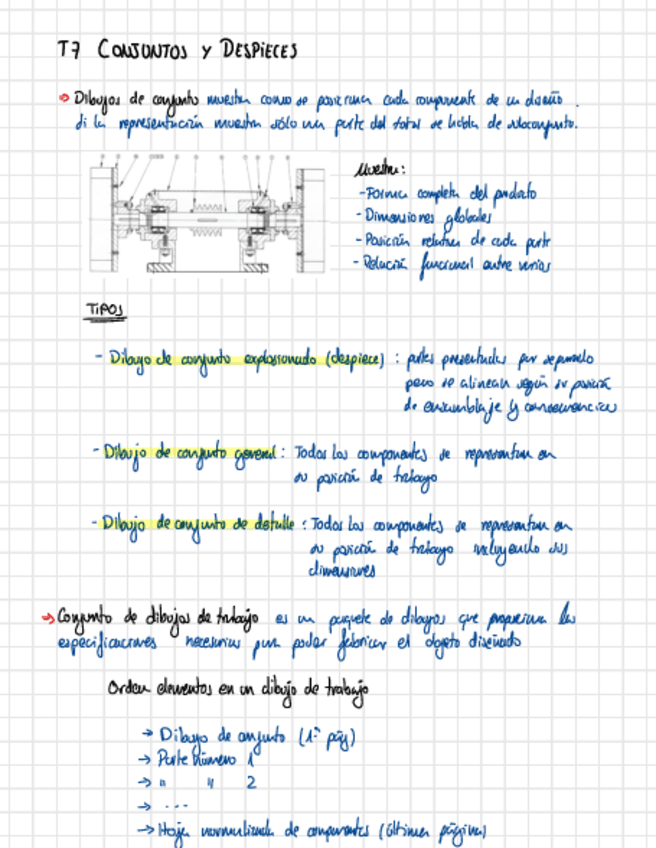 T7 CONJUNTOS Y DESPIECES
Dibujos de conjunto muestra como se posiciona cada componente de un diseño.
Si la representación muestra sólo una parte del total se habla de subconjunto.
Muestra:
- Forma completa del producto
- Dimensiones globales
- Posición relativa de cada parte
- Relación funcional entre varias
TIPOS
- Dibujo de conjunto explosionado (despiece) : partes presentadas por separado
pero se alinean según su posición
de ensamblaje y consecuencias
- Dibujo de conjunto general : Todos los componentes se representan en
su posición de trabajo
- Dibujo de conjunto de detalle : Todos los componentes se representan en
su posición de trabajo incluyendo sus
dimensiones
→ Conjunto de dibujos de trabajo es un paquete de dibujos que proporciona las
especificaciones necesarias para poder fabricar el objeto diseñado
Orden elementos en un dibujo de trabajo
→ Dibujo de conjunto (1ª pág)
→ Parte número 1
→ " " 2
→ ...
→ Hoja normalizada de componentes (última página)